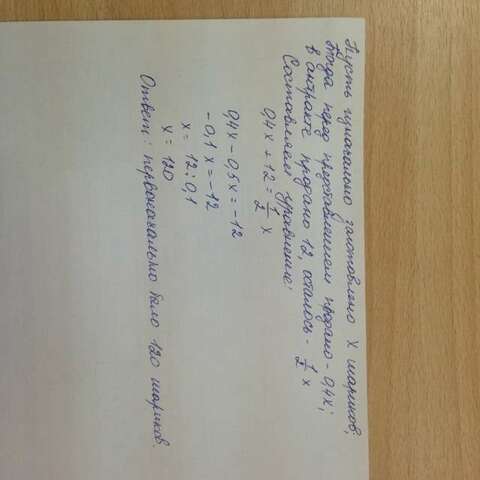 Пусть изначально заготовлено x шариков;
тогда перед представлением продано - 0,4x;
в антракте продано 12, осталось - 1/2 x
Составляем уравнение:
0,4x + 12 = 1/2 x
0,4x - 0,5x = -12
-0,1x = -12
x = 12 : 0,1
x = 120
Ответ: первоначально было 120 шариков.